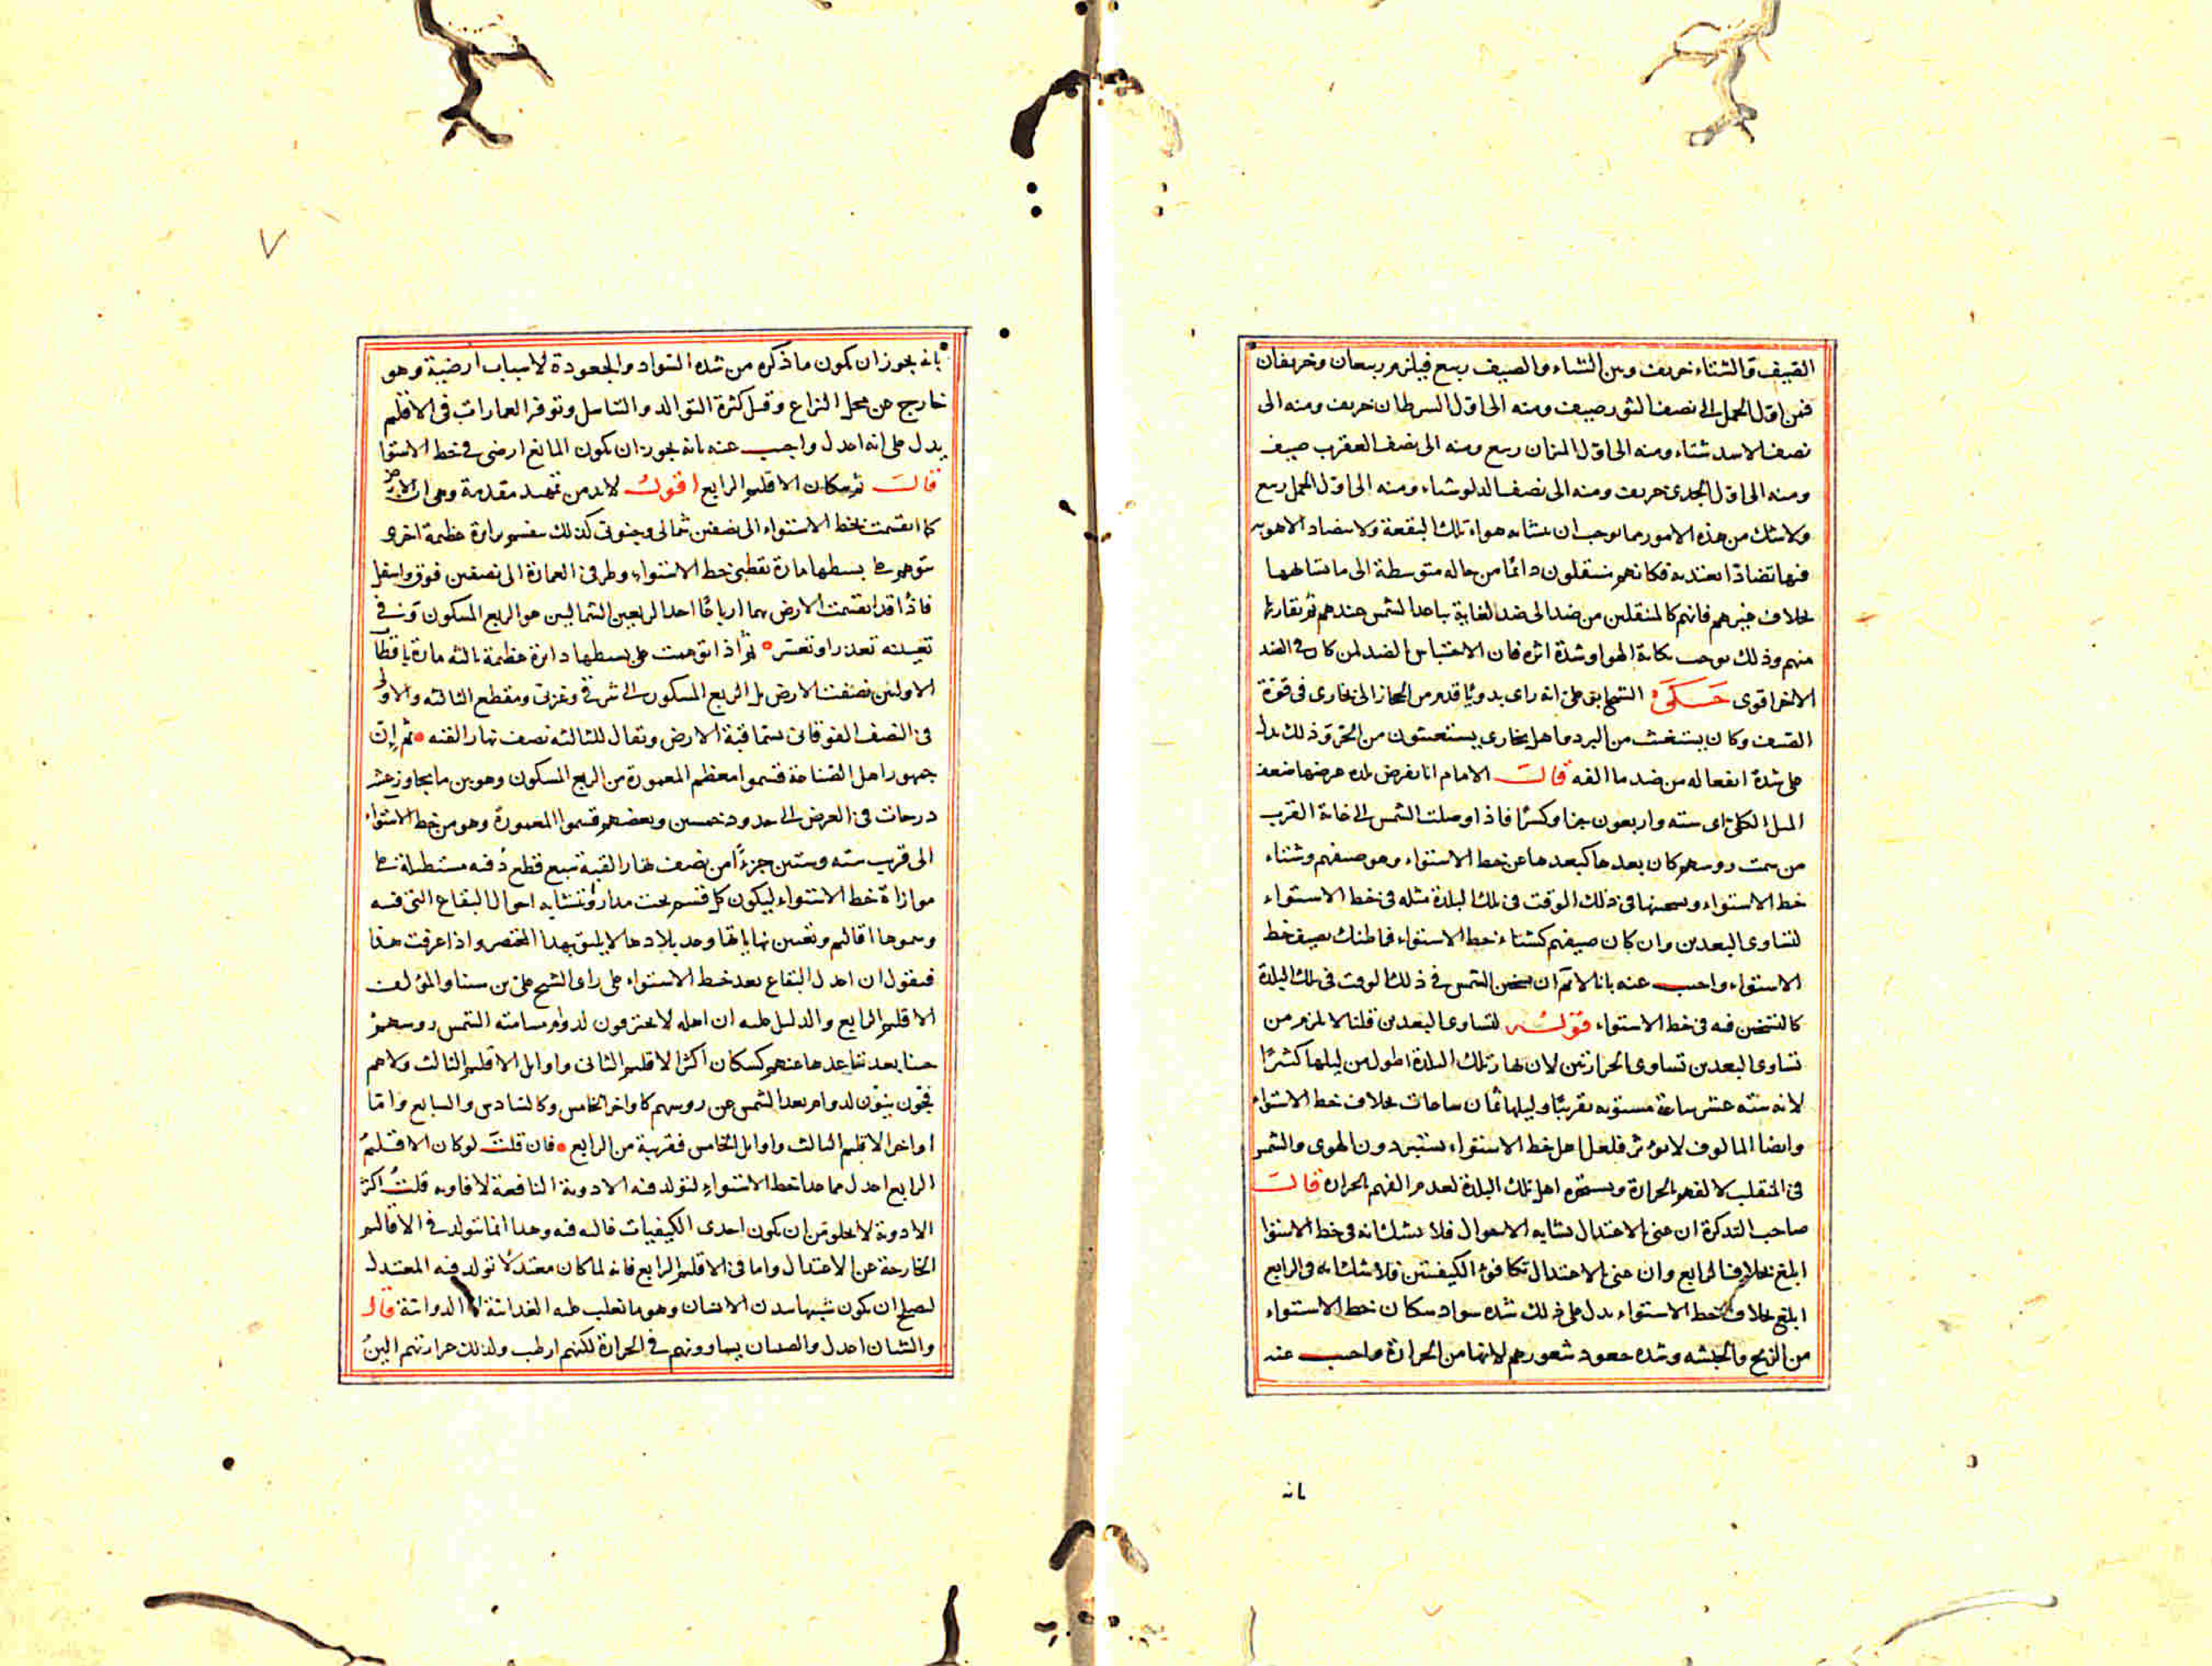 الصيف والشتاء خريف وبين الشتاء والصيف ربيع فيلزم ربيعان وخريفان
فمن اول الحمل الى نصف الثور صيف ومنه الى اول السرطان خريف ومنه الى
نصف الاسد شتاء ومنه الى اول الميزان ربيع ومنه الى نصف العقرب صيف
ومنه الى اول الجدى خريف ومنه الى نصف الدلو شتاء ومنه الى اول الحمل ربيع
ولا شك من هذه الامور مما يوجب ان يتشابه هواء تلك البقعة ولا يتضاد الاهويه
فيها تضادا يعتد به فكانهم ينتقلون دائما من حاله متوسطة الى ما يشابهها
بخلاف غيرهم فانهم كالمنتقلين من ضد الى ضد لغاية تباعد الشمس عندهم ثم تقاربها
منهم وذلك يوجب نكاية الهوا وشدة اثره فان الاحتباس الضد لمن كان فى الضد
الاخر اقوى حكى الشيخ ابو على انه راى بدويا قدم من الحجاز الى بخارى فى قوة
الصيف وكان يستغيث من البرد وما اهل بخارى يستغيثون من الحر وذلك يدل
على شدة انفعاله من ضد ما الفه قال الامام انا نفرض بلده عرضها ضعف
الميل الكلى اى سته واربعون جزا وكسرا فاذا وصلت الشمس الى غاية القرب
من سمت روسهم كان بعدها كبعدها عن خط الاستواء وهو صيفهم وشتاء
خط الاستواء وتسخينها فى ذلك الوقت فى تلك البلدة مثله فى خط الاستواء
لتساوى البعدين وان كان صيفهم كشتاء خط الاستواء فما ظنك بصيف خط
الاستواء واجيب عنه بانا لا نم ان تسخن الشمس فى ذلك الوقت فى تلك البلدة
كالتسخن فيه فى خط الاستواء قوله لتساوى البعدين قلنا لا يلزم من
تساوى البعدين تساوى الحرارتين لان نهار تلك البلدة اطول من ليلها كثيرا
لانه سته عشر ساعة مستويه تقريبا وليلها ثمان ساعات بخلاف خط الاستواء
وايضا المالوف لا يؤثر فلعل اهل خط الاستواء يستبردون الهوى والشمس
فى المنقلب لالفهم الحرارة ويستحره اهل تلك البلدة لعدم الفهم الحرارة قال
صاحب التذكرة ان عنى بالاعتدال تشابه الاحوال فلا شك انه فى خط الاستوا
ابلغ بخلاف الرابع وان عنى بالاعتدال تكافؤ الكيفيتين فلا شك انه فى الرابع
ابلغ بخلاف خط الاستواء يدل على ذلك شده سواد سكان خط الاستواء
من الزنج والحبشه وشده جعود شعورهم لانها من الحرارة واجيب عنه
بانه
بانه يجوز ان يكون ما ذكره من شده السواد والجعودة لاسباب ارضية وهو
خارج عن محل النزاع وقيل كثرة التوالد والتناسل وتوفر العمارات فى الاقليم
يدل على انه اعدل واجيب عنه بانه يجوز ان يكون المانع ارضى فى خط الاستوا
قال ثم سكان الاقليم الرابع اقول لابد من تمهيد مقدمة وهى ان الارض
كما انقسمت بخط الاستواء الى نصفين شمالى وجنوبى كذلك ينقسم بدايرة عظيمة اخرى
يتوهم على بسيطها مارة بقطبى خط الاستواء وطرفى العمارة الى نصفين فوق واسفل
فاذا قد انقسمت الارض بهما ارباعا احد الربعين الشماليين هو الربع المسكون وفى
تعيينه تعذر او تعسر ثم اذا توهمت على بسيطها دائرة عظيمة ثالثه مارة باقطاب
الاولين نصفت الارض بل الربع المسكون الى شرقى وغربى ومقطع الثالثه والاولى
فى النصف الفوقانى يسما قبة الارض ويقال للثالثه نصف نهار القبه ثم ان
جمهور اهل الصناعة قسموا معظم المعمورة من الربع المسكون وهو بين ما يجاوز عشر
درجات فى العرض الى حدود خمسين وبعضهم قسموا المعمورة وهو من خط الاستواء
الى قريب سته وستين جزءا من نصف نهار القبة سبع قطع دقيقه مستطيلة على
موازاة خط الاستواء ليكون كل قسم تحت مدار وتتشابه احوال البقاع التى فيه
وسموها اقاليم وتعيين نهاياتها وعد بلادها لا يليق بهذا المختصر واذا عرفت هذا
فنقول ان اعدل البقاع بعد خط الاستواء على راى الشيخ على بن سينا والمؤلف
الاقليم الرابع والدليل عليه ان اهله لا يحترقون لدوام مسامته الشمس روسهم
حينا بعد تباعدها عنهم كسكان اكثر الاقليم الثانى واوايل الاقليم الثالث ولا هم
فجون نيئون لدوام بعد الشمس عن روسهم كاواخر الخامس وكالسادس والسابع واما
اواخر الاقليم الثالث واوايل الخامس فقريبة من الرابع فان قلت لو كان الاقليم
الرابع اعدل مما عدا خط الاستواء لتولد فيه الادوية النافعة لافاويه قلت اكثر
الادوية لا يخلو من ان يكون احدى الكيفيات غالبه فيه وهذا انما يتولد فى الاقاليم
الخارجة عن الاعتدال واما فى الاقليم الرابع فانه لما كان معتدلا تولد فيه المعتدل
لصلح ان يكون شبيها ببدن الانسان وهو ما تغلب عليه الغذائية لا الدوائية قال
والشبان اعدل والصبيان يساوونهم فى الحرارة لكنهم ارطب ولذلك حرارتهم الين